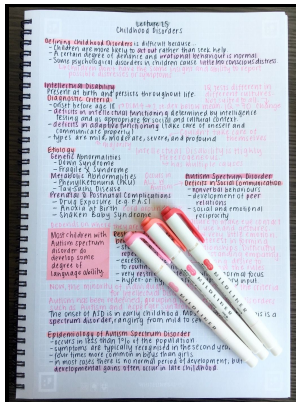 Lecture 25:
Childhood Disorders
Defining Childhood Disorders is difficult because...
- Children are more likely to act out rather than seek help
- A certain degree of defiance and irrational behaviour is normal
- Some psychological disorders in children cause little/no conscious distress
Intellectual Disability
Present at birth and persists throughout life
Diagnostic Criteria
- onset before age 18
- deficits in intellectual functioning (determined by intelligence
testing and is appropriate for social and cultural context)
- deficits in adaptive functioning (take care of oneself and
communicate properly)
- types are mild, moderate, severe, and profound
Etiology
Genetic Abnormalities
- Down Syndrome
- Fragile X Syndrome
Metabolic Abnormalities
- Phenylketonuria (PKU)
- Tay-Sachs Disease
Prenatal & Postnatal Complications
- Drug Exposure (e.g. FAS)
- Anoxia at Birth
- Shaken Baby Syndrome
Autism Spectrum Disorder
Deficit in Social Communication
- nonverbal behaviours
- development of peer
relations
- social and emotional
reciprocity
Most children with
Autism spectrum
disorder do
develop some
degree of
language ability.
to routine
- very
- hyper- or
focus
The onset of ASD is in early childhood.
spectrum disorder, ranging from mild to
Epidemiology of Autism Spectrum Disorder
- occurs in less than 1% of the population
- symptoms are typically recognised in the second year
- four times more common in boys than girls
- in most cases there is no normal period of development, but
developmental gains often occur in late childhood